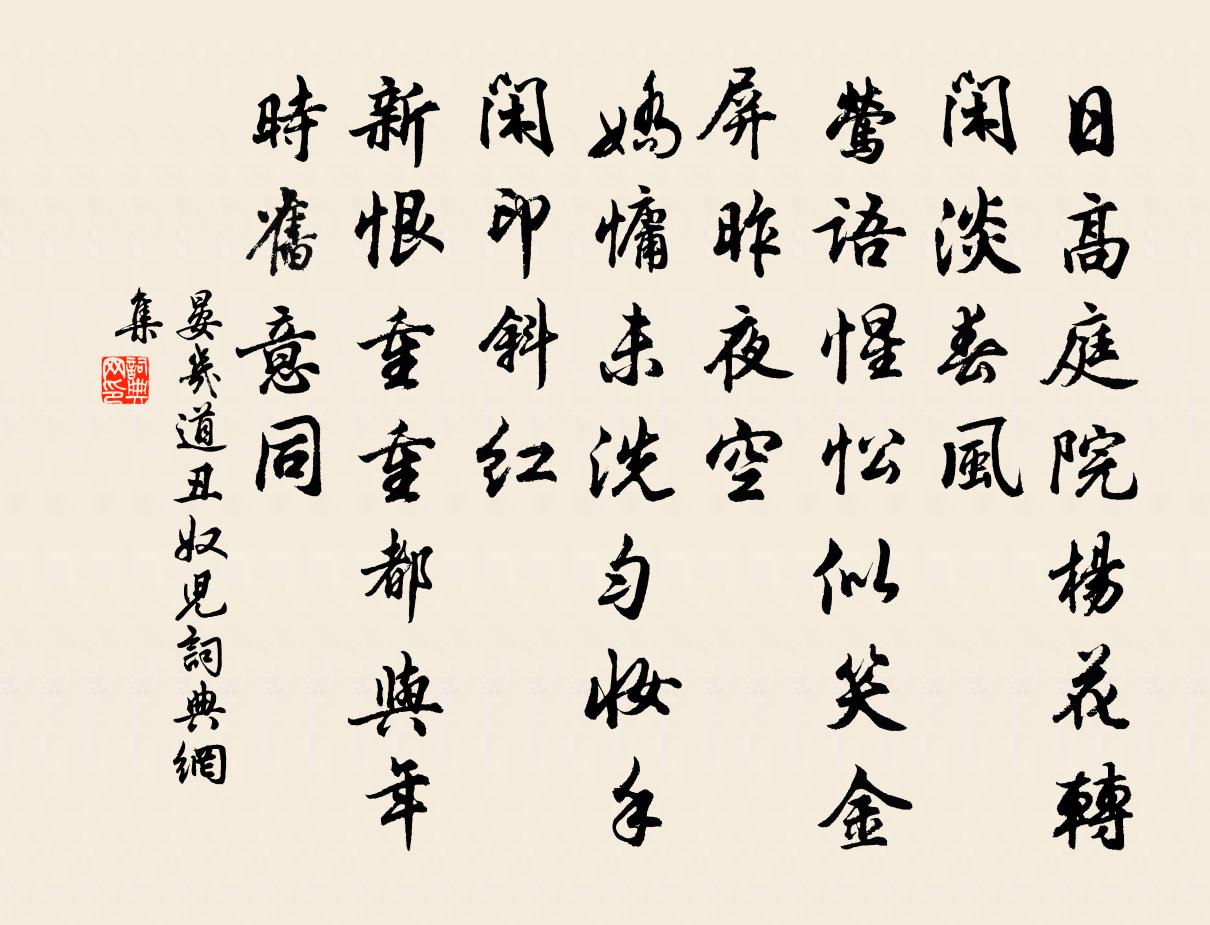 日高庭院楊花轉
閑淡春風
鶯語惺忪似笑金
屏昨夜空
嬌慵未洗勻妝手
閑印斜紅
新恨重重都與年
時舊意同
晏幾道丑奴兒詞典網
集
詞典網印